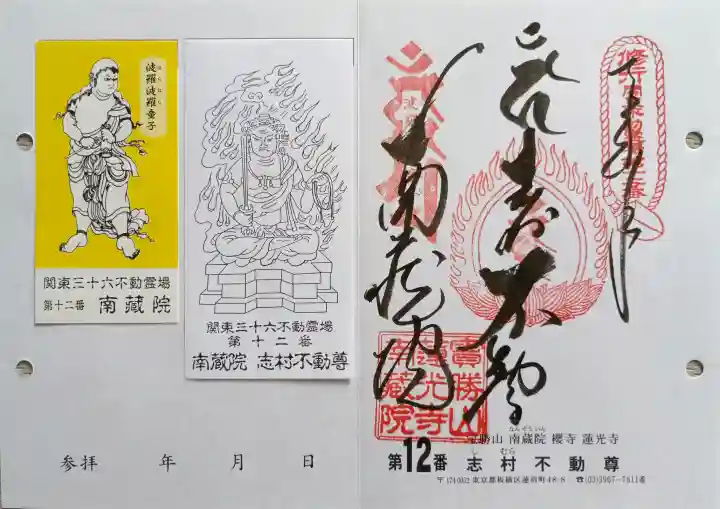 波羅波羅童子
はらはら
関東三十六不動霊場
第十二番 南藏院
関東三十六不動霊場
第十二番
南蔵院 志村不動尊
参拝 年 月 日
奉拝
志村不動
南蔵院
寳勝山
蓮光寺
南藏院
なんぞういん
宝勝山 南蔵院 櫻寺 蓮光寺
しむら
第12番 志村不動尊
東京都板橋区蓮沼町48-8 ☎(03)3967-7611番